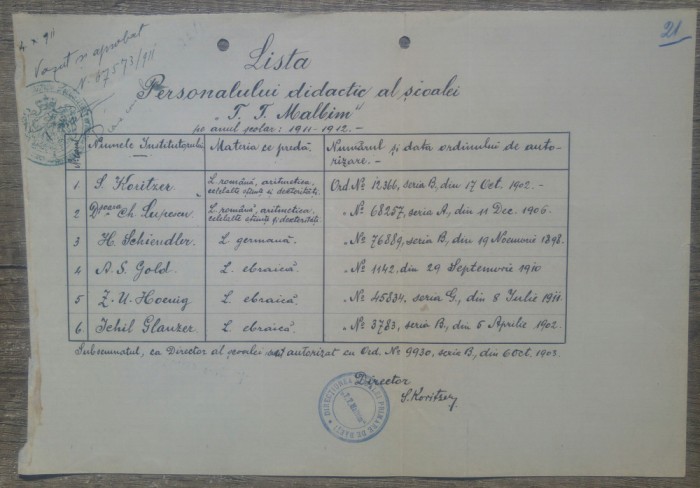 4 X 911
Vazut și aprobat
N. 67573/911
21
Lista
Personalului didactic al școalei
„T. T. Malbim"
pe anul școlar: 1911-1912. -
Numele Institutorului
Materia ce predă.
Numărul și data ordinului de auto-
rizare. -
1 S. Koritzer
L. română, aritmetica,
celelalte științi și dexterități.
Ord No 12366, seria B, din 17 Oct. 1902. -
2 Ch. Lupescu
L. română, aritmetica,
celelalte științi și dexterități.
„ No 68257, seria A, din 11 Dec. 1906.
3 H. Schiendler.
L. germană.
„ No 76889, seria B, din 19 Noemvrie 1898.
4 A. S. Gold.
L. ebraică.
„ No 1142 din 29 Septemvrie 1910
5 Z. U. Hoenig
L. ebraică.
„ No 45834, seria G., din 8 Iulie 1911.
6 Ichil Glauzer.
L. ebraică.
„ No 3783, seria B, din 5 Aprilie, 1902.
Subsemnatul, ca Director al școalei autorizat cu Ord. No 9930, seria B, din 6 Oct. 1903.
Director
S. Koritzer